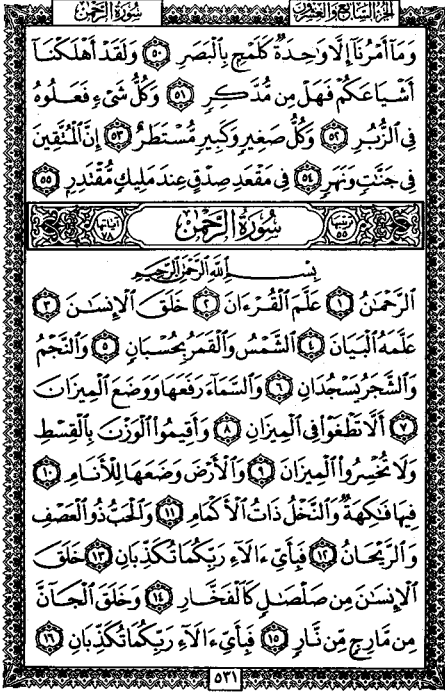 سُورَةُ الرَّحْمَٰن
الجُزءُ السَّابِعُ وَالعِشْرُونَ
وَمَآ أَمْرُنَآ إِلَّا وَٰحِدَةٌ كَلَمْحٍۭ بِٱلْبَصَرِ ٥٠ وَلَقَدْ أَهْلَكْنَآ
أَشْيَاعَكُمْ فَهَلْ مِن مُّدَّكِرٍ ٥١ وَكُلُّ شَىْءٍ فَعَلُوهُ
فِى ٱلزُّبُرِ ٥٢ وَكُلُّ صَغِيرٍ وَكَبِيرٍ مُّسْتَطَرٌ ٥٣ إِنَّ ٱلْمُتَّقِينَ
فِى جَنَّٰتٍ وَنَهَرٍ ٥٤ فِى مَقْعَدِ صِدْقٍ عِندَ مَلِيكٍ مُّقْتَدِرٍۭ ٥٥
ترتيبها ٥٥ سُورَةُ الرَّحْمَٰن آياتها ٧٨
بِسْمِ ٱللَّهِ ٱلرَّحْمَٰنِ ٱلرَّحِيمِ
ٱلرَّحْمَٰنُ ١ عَلَّمَ ٱلْقُرْءَانَ ٢ خَلَقَ ٱلْإِنسَٰنَ ٣
عَلَّمَهُ ٱلْبَيَانَ ٤ ٱلشَّمْسُ وَٱلْقَمَرُ بِحُسْبَانٍ ٥ وَٱلنَّجْمُ
وَٱلشَّجَرُ يَسْجُدَانِ ٦ وَٱلسَّمَآءَ رَفَعَهَا وَوَضَعَ ٱلْمِيزَانَ
٧ أَلَّا تَطْغَوْا۟ فِى ٱلْمِيزَانِ ٨ وَأَقِيمُوا۟ ٱلْوَزْنَ بِٱلْقِسْطِ
وَلَا تُخْسِرُوا۟ ٱلْمِيزَانَ ٩ وَٱلْأَرْضَ وَضَعَهَا لِلْأَنَامِ ١٠
فِيهَا فَٰكِهَةٌ وَٱلنَّخْلُ ذَاتُ ٱلْأَكْمَامِ ١١ وَٱلْحَبُّ ذُو ٱلْعَصْفِ
وَٱلرَّيْحَانُ ١٢ فَبِأَىِّ ءَالَآءِ رَبِّكُمَا تُكَذِّبَانِ ١٣ خَلَقَ
ٱلْإِنسَٰنَ مِن صَلْصَٰلٍ كَٱلْفَخَّارِ ١٤ وَخَلَقَ ٱلْجَآنَّ
مِن مَّارِجٍ مِّن نَّارٍ ١٥ فَبِأَىِّ ءَالَآءِ رَبِّكُمَا تُكَذِّبَانِ ١٦
٥٣١